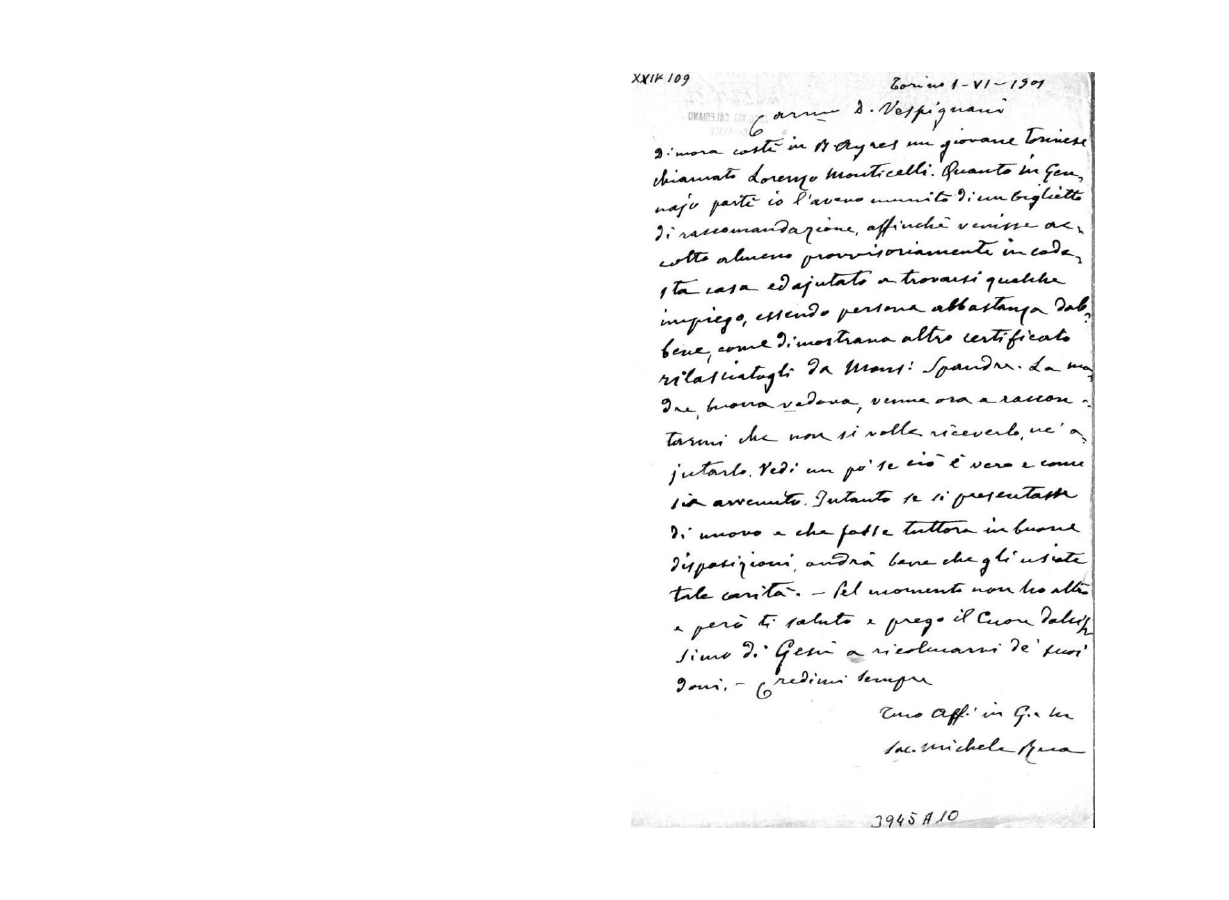 XXIV 109
Torino 1-VI-1901
Carmo D. Vespignani
Dimora costì in B Ayres un giovane torinese
chiamato Lorenzo Monticelli. Quanto in Gen-
najo partì io l'avevo munito di un biglietto
di raccomandazione, affinchè venisse ac-
colto almeno provvisoriamente in code-
sta casa ed ajutato a trovarsi qualche
impiego, essendo persona abbastanza dab-
bene, come dimostrava altro certificato
rilasciatogli da Mons: Spandre. La ma
dre, buona vedova, venne ora a raccon-
tarmi che non si volle riceverlo, nè a-
jutarlo. Vedi un po' se ciò è vero e come
sia avvenuto. Intanto se si presentasse
di nuovo e che fosse tuttora in buone
disposizioni, andrà bene che gli usiate
tale carità. - Pel momento non ho altro
e però ti saluto e prego il Cuore dolcis
simo di Gesù a ricolmarvi de' suoi
doni. - Credimi sempre
Tuo Aff: in G. e M
Sac. Michele Rua
3945 A 10